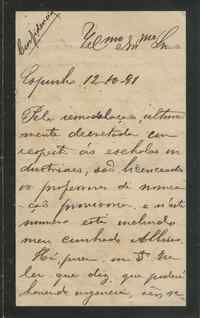 Confidencial
Ex.mo Am.o e Snr.
Espinho 12-10-91
Pela remodelação ultima
mente decretada com
respeito ás escholas in
dustriaes, são licenceados
os professores de nomea
ção provisoria e n'este
numero está incluido
meu cunhado
Ha, porem, um § uni
que diz que poderá
havendo urgencia,